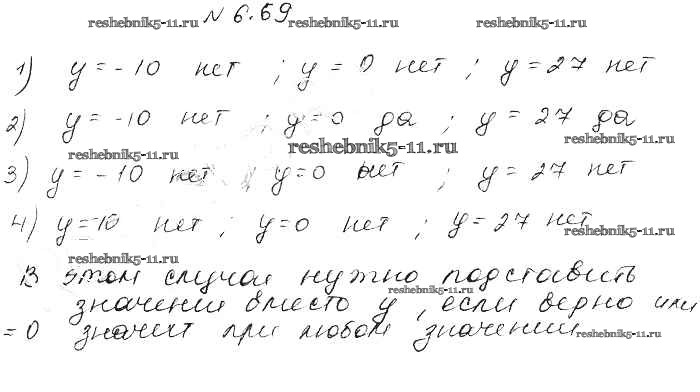 № 6.69
reshebnik5-11.ru reshebnik5-11.ru reshebnik5-11.ru
1) y = -10 нет ; y = 0 нет ; y = 27 нет
2) y = -10 нет ; y = 0 да ; y = 27 да
reshebnik5-11.ru reshebnik5-11.ru reshebnik5-11.ru
3) y = -10 нет ; y = 0 нет ; y = 27 нет
4) y = 10 нет ; y = 0 нет ; y = 27 нет
reshebnik5-11.ru reshebnik5-11.ru
В этом случаи нужно подставить
значении вместо y, если верно или
= 0 значит при любом значении
reshebnik5-11.ru reshebnik5-11.ru reshebnik5-11.ru